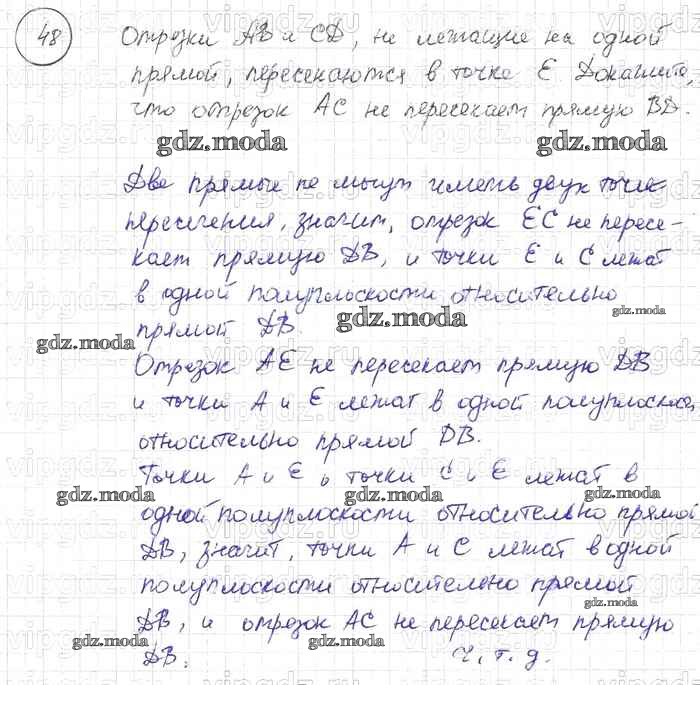 48 Отрезки AB и CD, не лежащие на одной
прямой, пересекаются в точке E. Докажите,
что отрезок AC не пересекает прямую BD.
gdz.moda gdz.moda
Две прямые не могут иметь двух точек
пересечения, значит, отрезок EC не пересе-
кает прямую DB, и точки E и C лежат
в одной полуплоскости относительно
gdz.moda
прямой DB.
gdz.moda
Отрезок AE не пересекает прямую DB
и точки A и E лежат в одной полуплоскос,
относительно прямой DB.
Точки A и E, и точки C и E лежат в
gdz.moda gdz.moda gdz.moda
одной полуплоскости относительно прямой
DB, значит, точки A и C лежат в одной
полуплоскости относительно прямой
gdz.moda
DB, и отрезок AC не пересекает прямую
gdz.moda gdz.moda
DB. Ч.т.д.